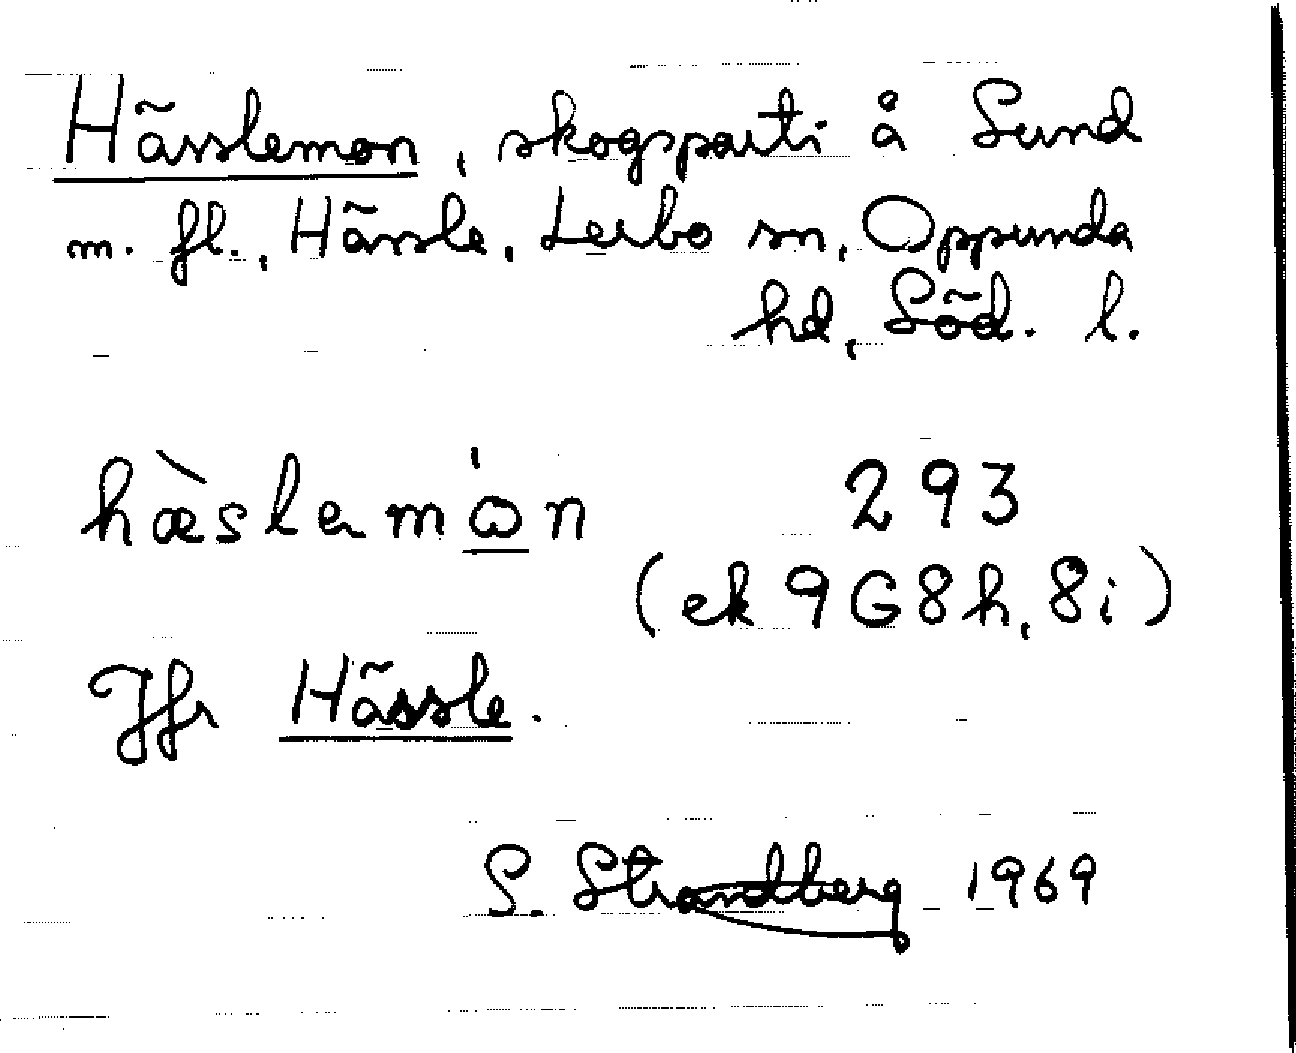 Hässlemon, skogsparti å Sund
m. fl., Hässle, Lerbo sn, Oppunda
hd, Söd. l.
hæ̀slemɷ́n 293
(ek 9G8h, 8i)
Jfr Hässle.
S. Strandberg 1969